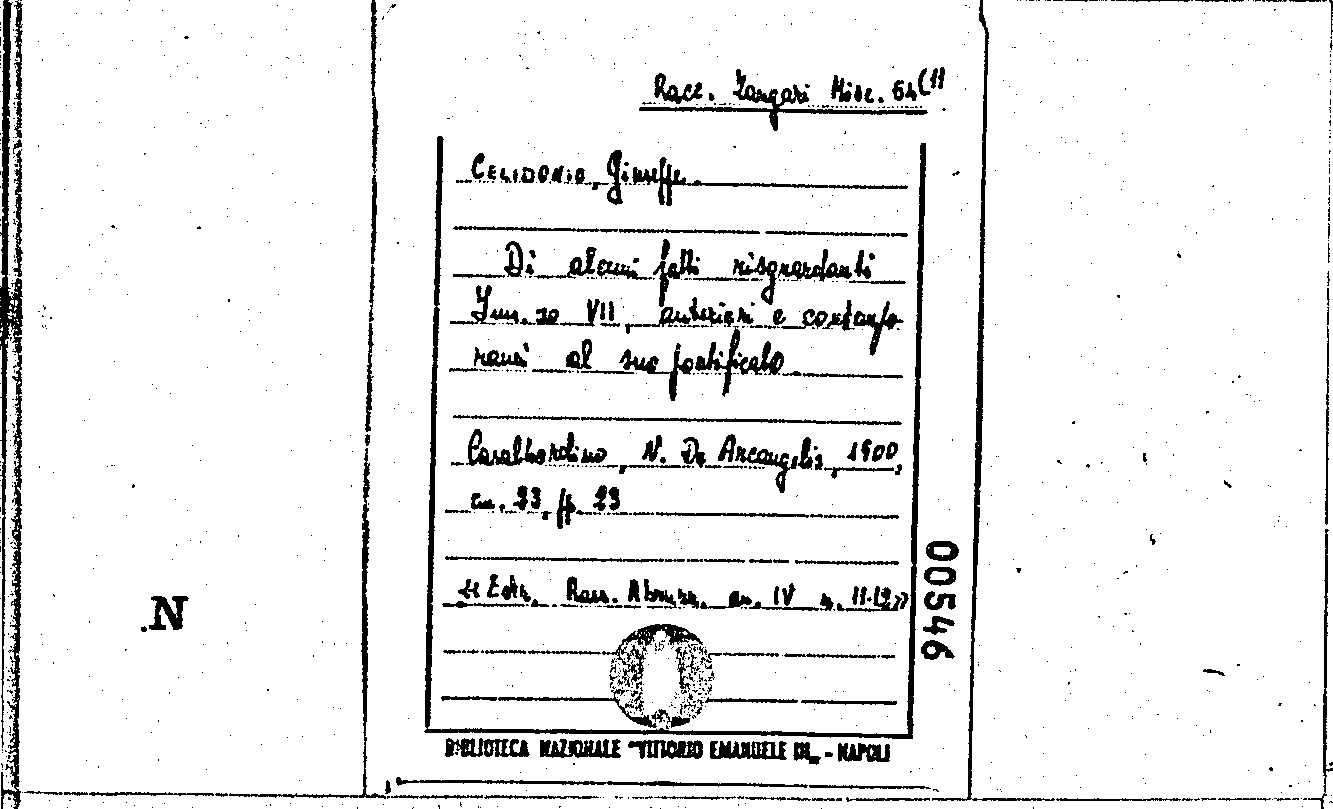 Racc. Zangari Misc. 64(11
CELIDONIO, Giuseppe.
Di alcuni fatti risguardanti
Inn.zo VII, anteriori e contempo
ranei al suo pontificato.
Casalbordino, N. De Arcangelis, 1900,
cm. 23, pp. 23
« Estr. Rass. Abruzz. an. IV n. 11-12»
00546
.N
BIBLIOTECA NAZIONALE "VITTORIO EMANUELE III„ - NAPOLI